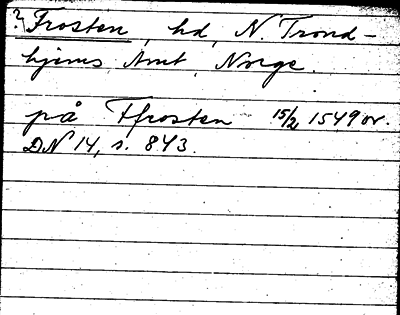 ? Frosten, hd, N. Trond-
hjems Amt, Norge.
på Ffrosten 15/2 1549 or.
DN 14, s. 843.